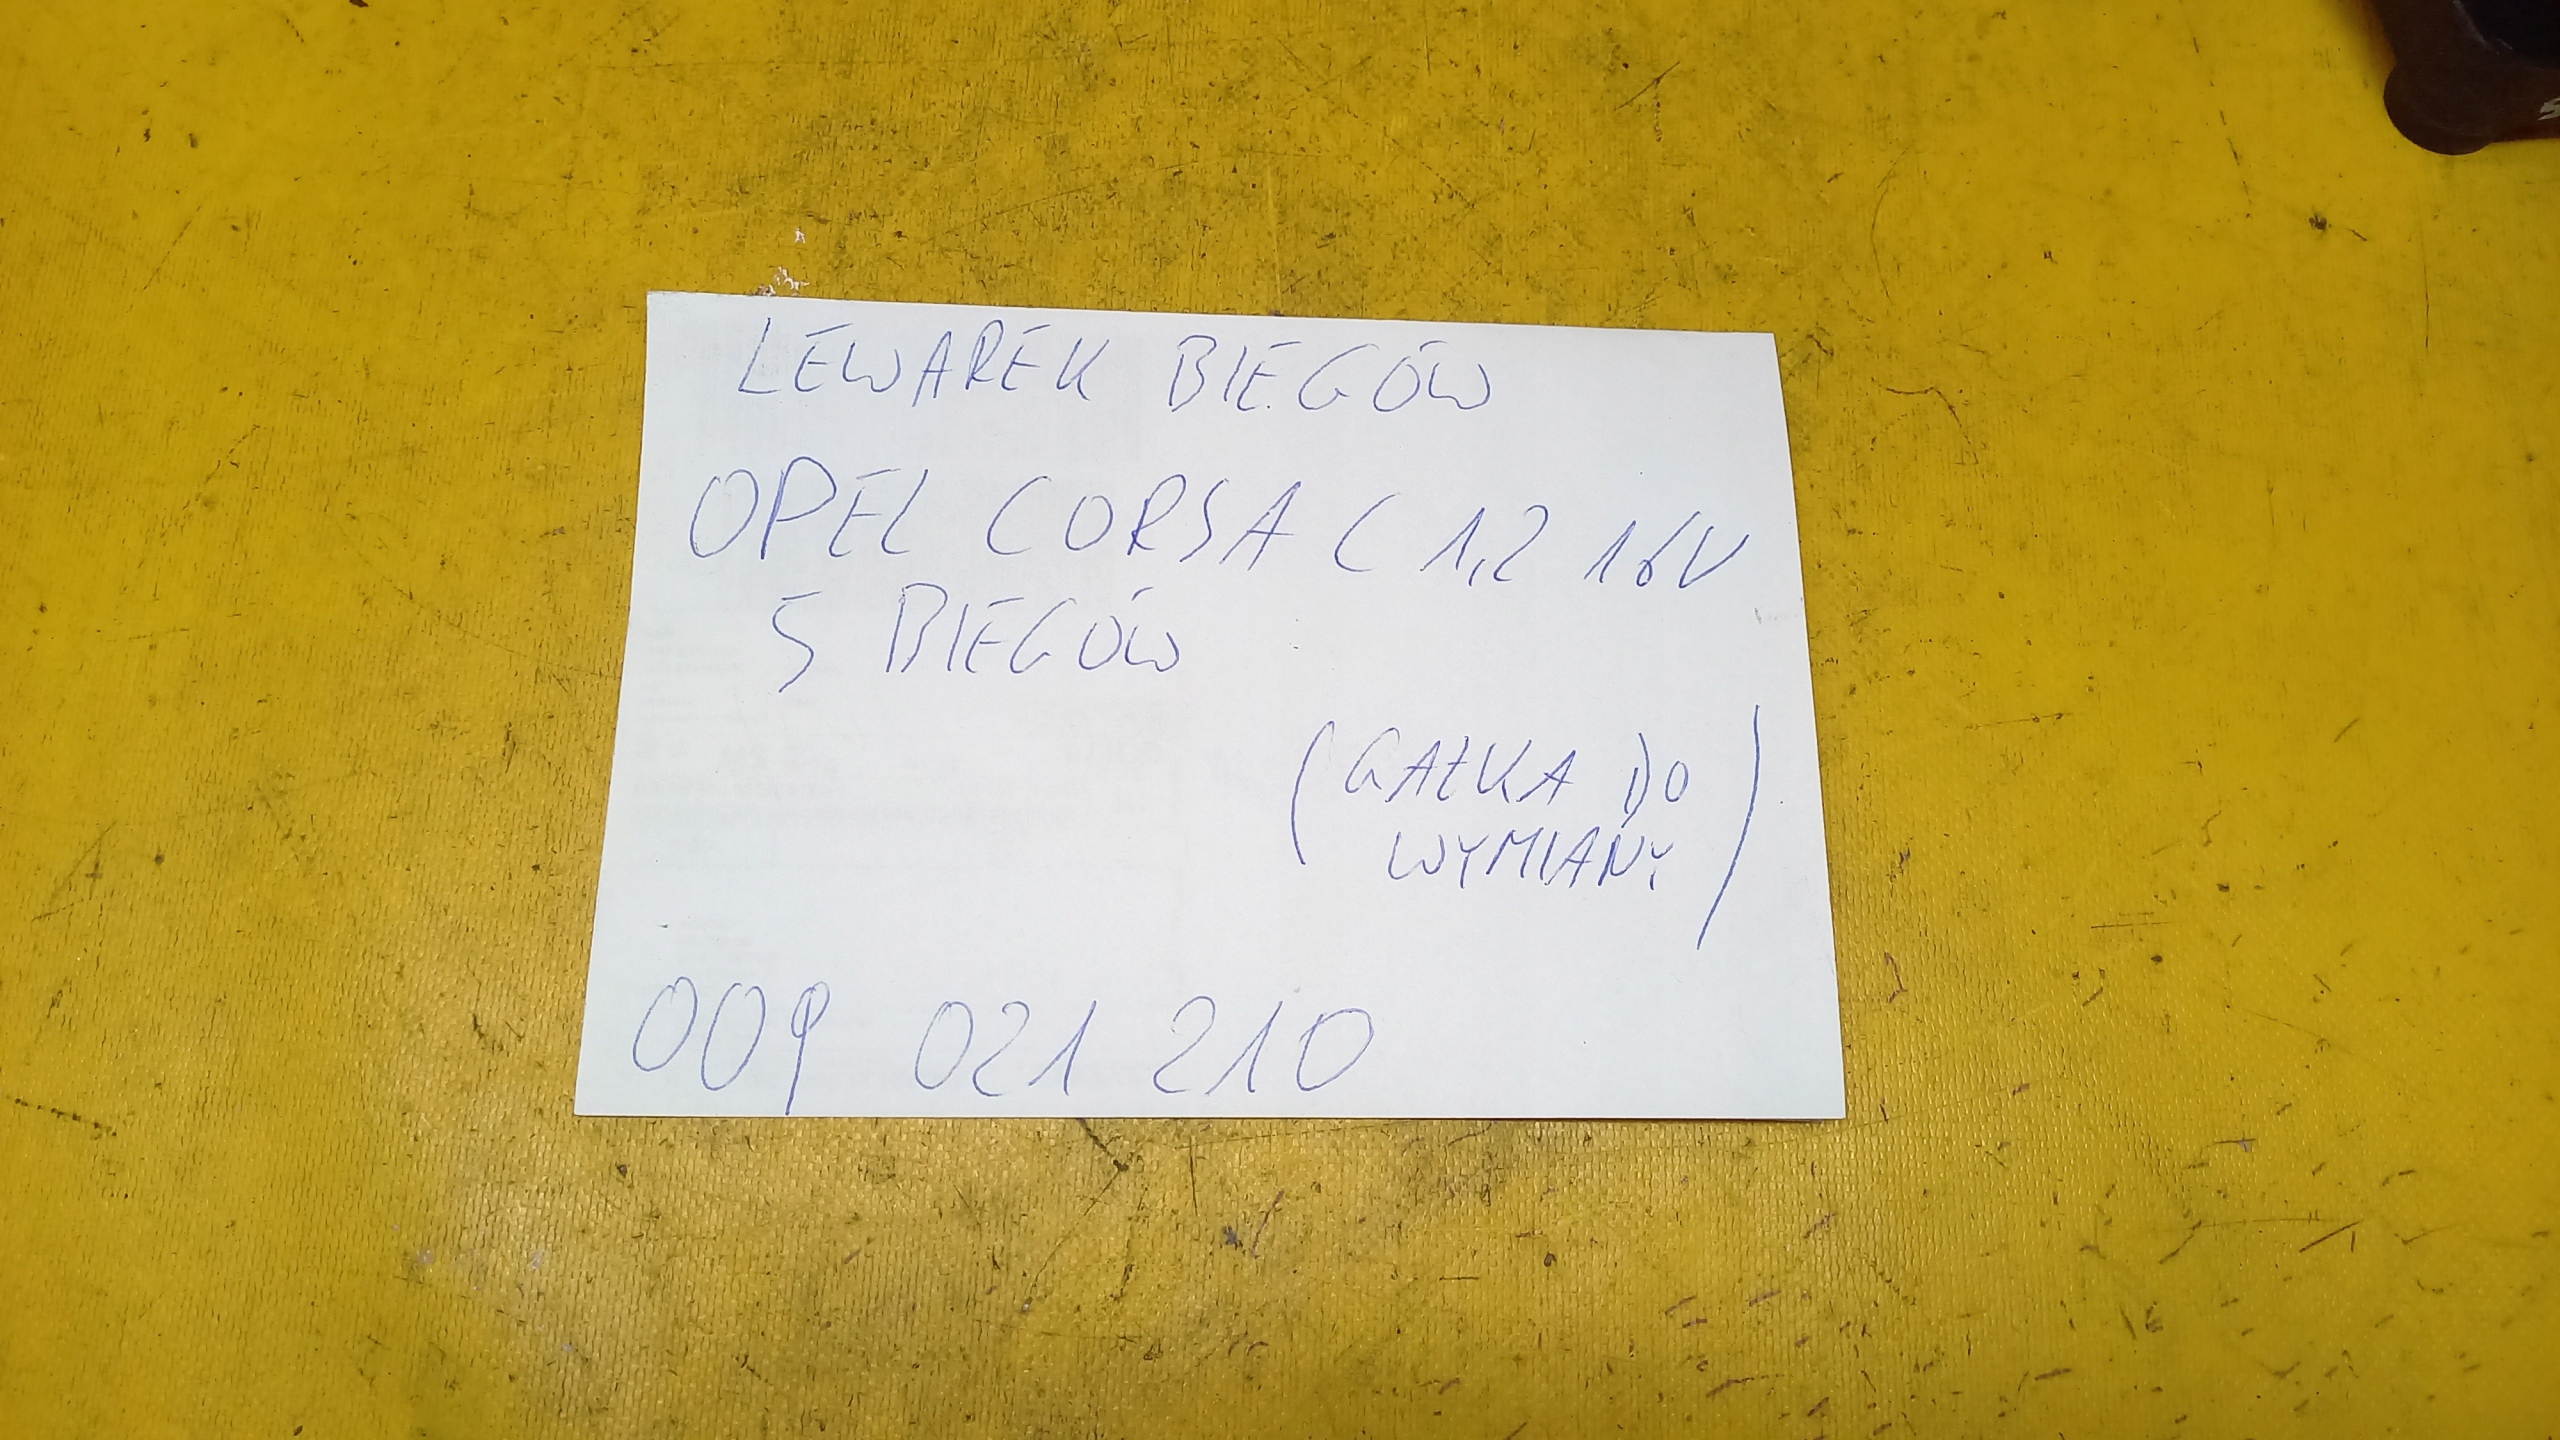 LEWAREK BIEGÓW
OPEL CORSA C 1,2 16V
5 BIEGÓW
(GAŁKA DO
WYMIANY)
009 021 210